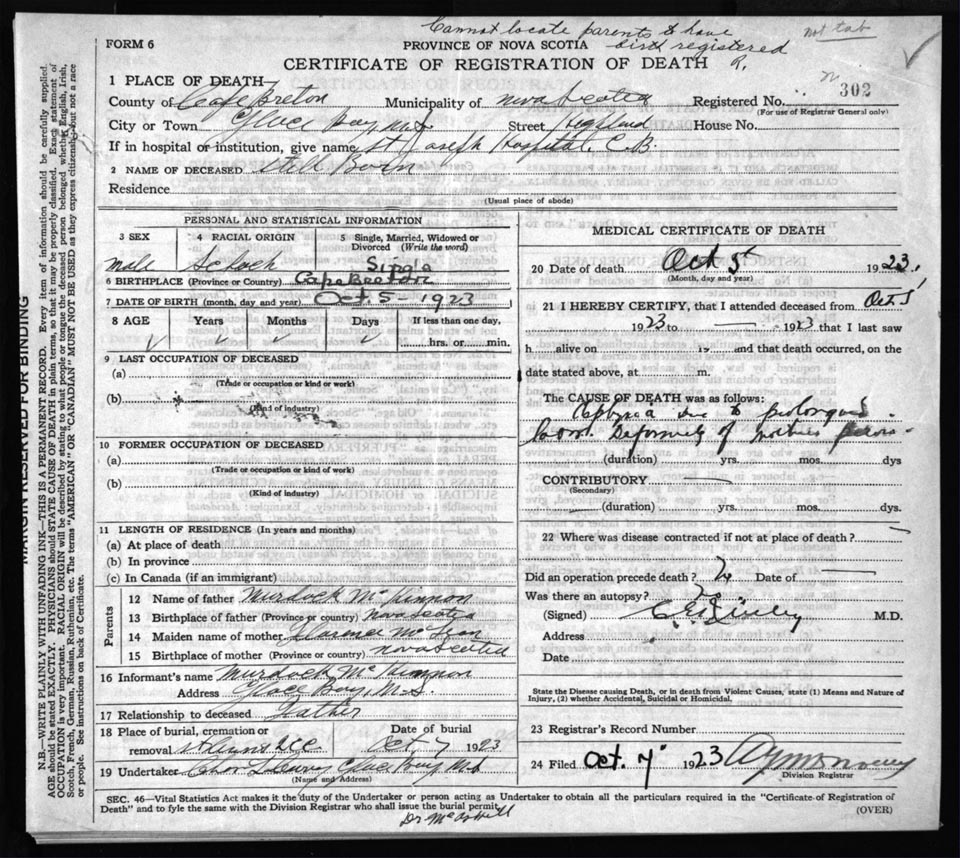 Cannot locate parents to have
birth registered
not tab
FORM 6
PROVINCE OF NOVA SCOTIA
CERTIFICATE OF REGISTRATION OF DEATH
1 PLACE OF DEATH
County of Cape Breton Municipality of Nova Scotia Registered No. 302
(For use of Registrar General only)
City or Town Glace Bay, N.S. Street Highland House No.
If in hospital or institution, give name St Joseph Hospital. C.B.
2 NAME OF DECEASED Still Born
Residence
(Usual place of abode)
PERSONAL AND STATISTICAL INFORMATION
3 SEX male
4 RACIAL ORIGIN Scotch
5 Single, Married, Widowed or Divorced (Write the word) Single
6 BIRTHPLACE (Province or Country) Cape Breton
7 DATE OF BIRTH (month, day, and year) Oct. 5 - 1923
8 AGE Years Months Days If less than one day, hrs. or min.
9 LAST OCCUPATION OF DECEASED
(a)
(Trade or occupation or kind or work)
(b)
(Kind of industry)
10 FORMER OCCUPATION OF DECEASED
(a)
(Trade or occupation or kind of work)
(b)
(Kind of industry)
11 LENGTH OF RESIDENCE (In years and months)
(a) At place of death
(b) In province
(c) In Canada (if an immigrant)
Parents
12 Name of father Murdock McKinnon
13 Birthplace of father (Province or country) Nova Scotia
14 Maiden name of mother Florence McLean
15 Birthplace of mother (Province or country) Nova Scotia
16 Informant's name Murdock McKinnon
Address Glace Bay, N.S.
17 Relationship to deceased Father
18 Place of burial, cremation or removal Date of burial Oct. 7 1923
19 Undertaker Glace Bay N.S.
(Name and Address)
MEDICAL CERTIFICATE OF DEATH
20 Date of death Oct 5 1923.
(Month, day and year)
21 I HEREBY CERTIFY, that I attended deceased from Oct 5
1923 to — 1923 that I last saw
h alive on 19 and that death occurred, on the
date stated above, at m.
The CAUSE OF DEATH was as follows:
due to prolonged
Deformity of mothers
(duration) yrs. mos. dys
CONTRIBUTORY
(Secondary)
(duration) yrs. mos. dys.
22 Where was disease contracted if not at place of death?
Did an operation precede death? Date of
Was there an autopsy? No
(Signed) M.D.
Address
Date
State the Disease causing Death, or in death from Violent Causes, state (1) Means and Nature of
Injury, (2) whether Accidental, Suicidal or Homicidal.
23 Registrar's Record Number
24 Filed Oct. 7 1923
Division Registrar
SEC. 46—Vital Statistics Act makes it the duty of the Undertaker or person acting as Undertaker to obtain all the particulars required in the "Certificate of Registration of
Death" and to fyle the same with the Division Registrar who shall issue the burial permit.
(OVER)
MARGIN RESERVED FOR BINDING
N.B.—WRITE PLAINLY WITH UNFADING INK—THIS IS A PERMANENT RECORD. Every item of information should be carefully supplied.
AGE should be stated EXACTLY. PHYSICIANS should STATE CAUSE OF DEATH in plain terms, so that it may be properly classified. Exact statement of
OCCUPATION is very important. RACIAL ORIGIN will be described by stating to what people or tongue the deceased person belonged whether English, Irish,
Scotch, French, German, Russian, Ruthenian, etc. The terms "AMERICAN" OR "CANADIAN" MUST NOT BE USED as they express citizenship but not a race
or people. See instructions on back of Certificate.